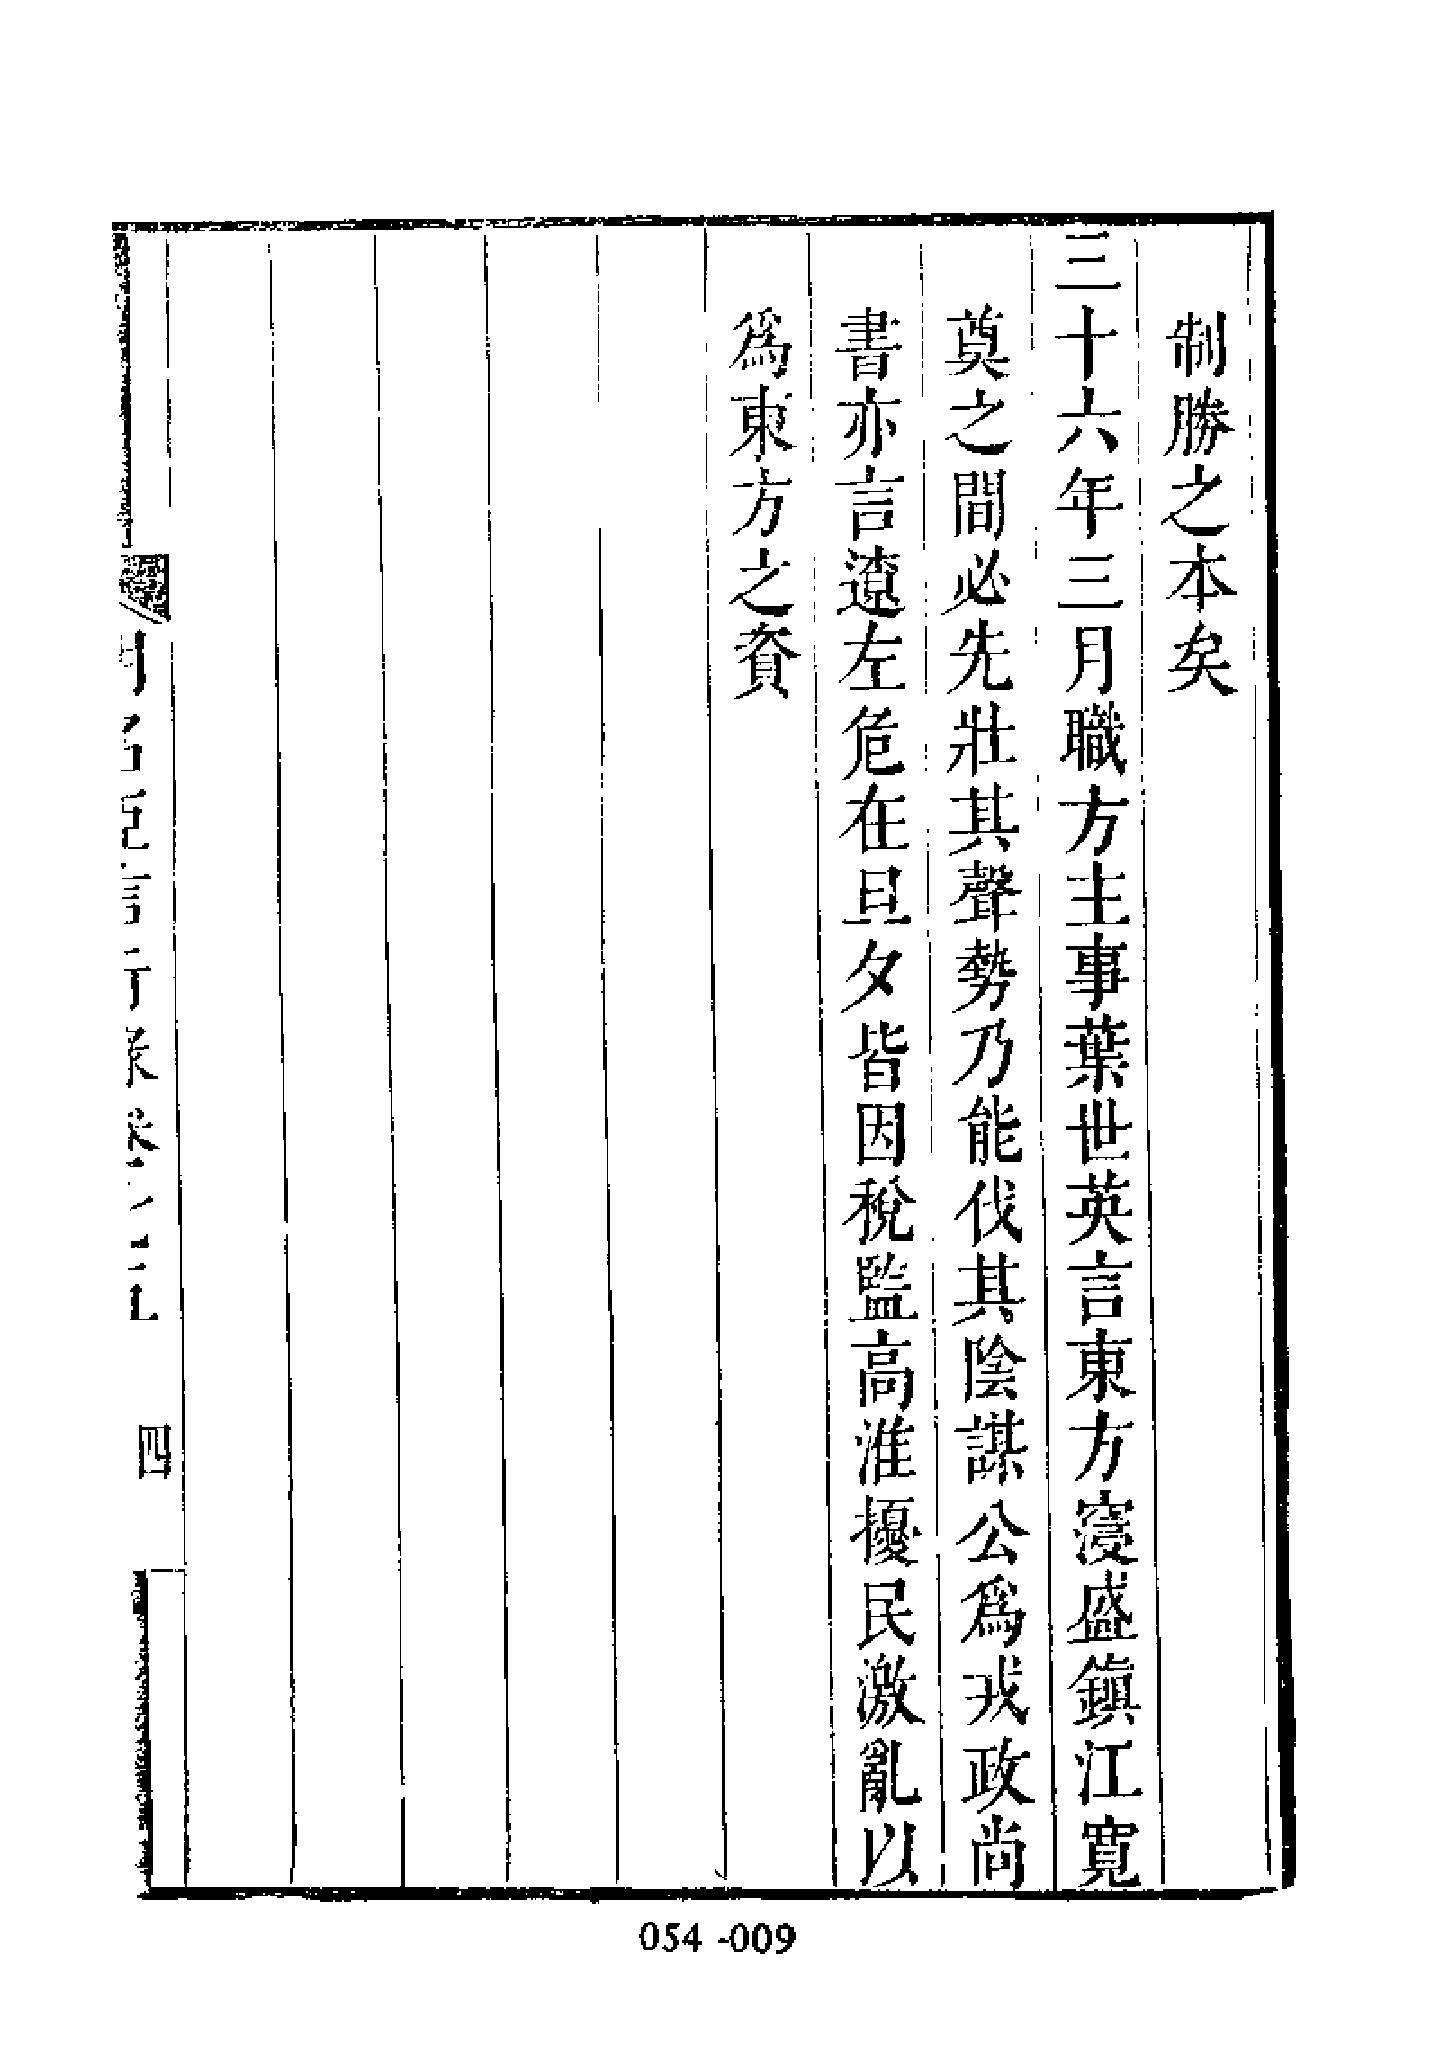 制勝之本矣
三十六年三月職方主事葉世英言東方寖盛鎮江寬
奠之間必先壯其聲勢乃能伐其陰謀公爲戎政尚
書亦言遼左危在旦夕皆因稅監高淮擾民激亂以
爲東方之資
明名臣言行錄卷
四
054 -009